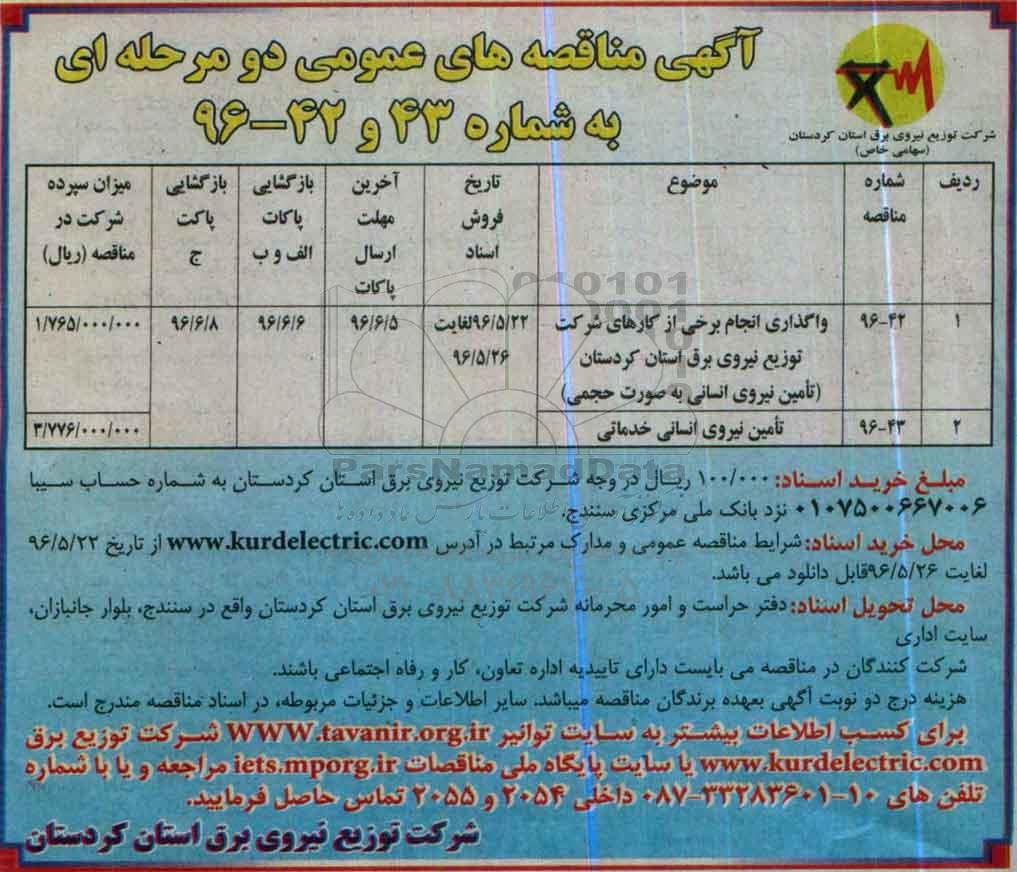 آگهی مناقصه های عمومی دو مرحله ای
به شماره ۴۳ و ۴۲-۹۶
شرکت توزیع نیروی برق استان کردستان
(سهامی خاص)
ردیف	شماره مناقصه	موضوع	تاریخ فروش اسناد	آخرین مهلت ارسال پاکات	بازگشایی پاکات الف و ب	بازگشایی پاکت ج	میزان سپرده شرکت در مناقصه (ریال)
۱	۹۶-۴۲	واگذاری انجام برخی از کارهای شرکت توزیع نیروی برق استان کردستان (تأمین نیروی انسانی به صورت حجمی)	۹۶/۵/۲۲لغایت ۹۶/۵/۲۶	۹۶/۶/۵	۹۶/۶/۶	۹۶/۶/۸	۱/۷۶۵/۰۰۰/۰۰۰
۲	۹۶-۴۳	تأمین نیروی انسانی خدماتی	۳/۷۷۶/۰۰۰/۰۰۰
مبلغ خرید اسناد: ۱۰۰/۰۰۰ ریال در وجه شرکت توزیع نیروی برق استان کردستان به شماره حساب سیبا
۰۱۰۷۵۰۰۶۶۷۰۰۶ نزد بانک ملی مرکزی سنندج.
محل خرید اسناد: شرایط مناقصه عمومی و مدارک مرتبط در آدرس www.kurdelectric.com از تاریخ ۹۶/۵/۲۲
لغایت ۹۶/۵/۲۶قابل دانلود می باشد.
محل تحویل اسناد: دفتر حراست و امور محرمانه شرکت توزیع نیروی برق استان کردستان واقع در سنندج، بلوار جانبازان،
سایت اداری
شرکت کنندگان در مناقصه می بایست دارای تاییدیه اداره تعاون، کار و رفاه اجتماعی باشند.
هزینه درج دو نوبت آگهی بعهده برندگان مناقصه میباشد. سایر اطلاعات و جزئیات مربوطه، در اسناد مناقصه مندرج است.
برای کسب اطلاعات بیشتر به سایت توانیر WWW.tavanir.org.ir شرکت توزیع برق
www.kurdelectric.com یا سایت پایگاه ملی مناقصات iets.mporg.ir مراجعه و یا با شماره
تلفن های ۱۰-۳۳۲۸۳۶۰۱-۰۸۷ داخلی ۲۰۵۴ و ۲۰۵۵ تماس حاصل فرمایید.
شرکت توزیع نیروی برق استان کردستان
ParsNamadData